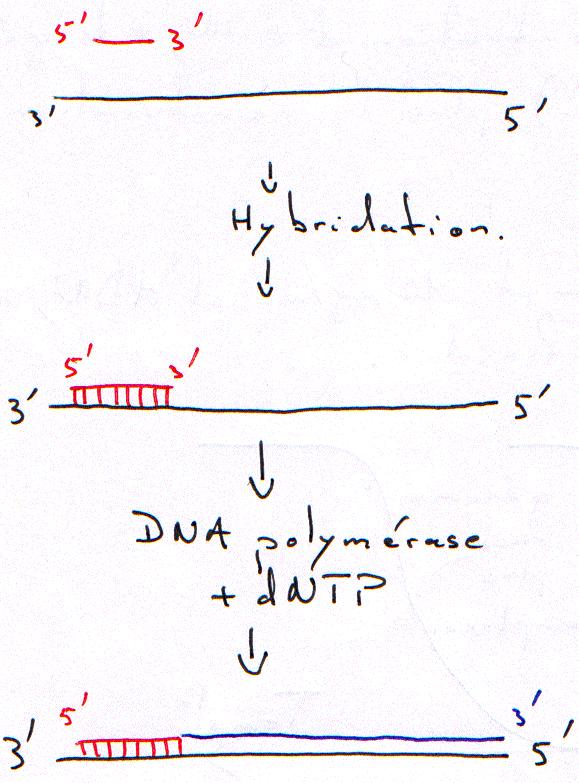 5' 3'
3' 5'
↓
Hybridation.
↓
5' 3'
3' 5'
↓
DNA polymérase
+ dNTP
↓
5' 3'
3' 5'